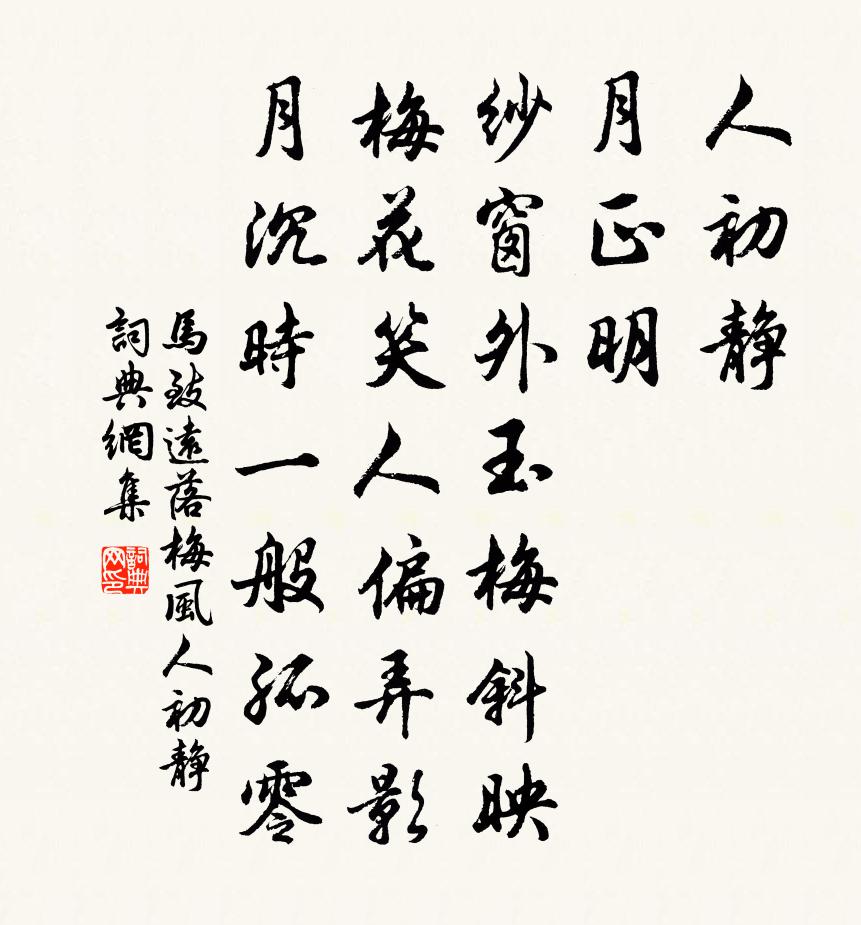 人初静
月正明
紗窗外玉梅斜映
梅花笑人偏弄影
月沉時一般孤零
馬致遠落梅風人初静
詞典網集
詞典网印